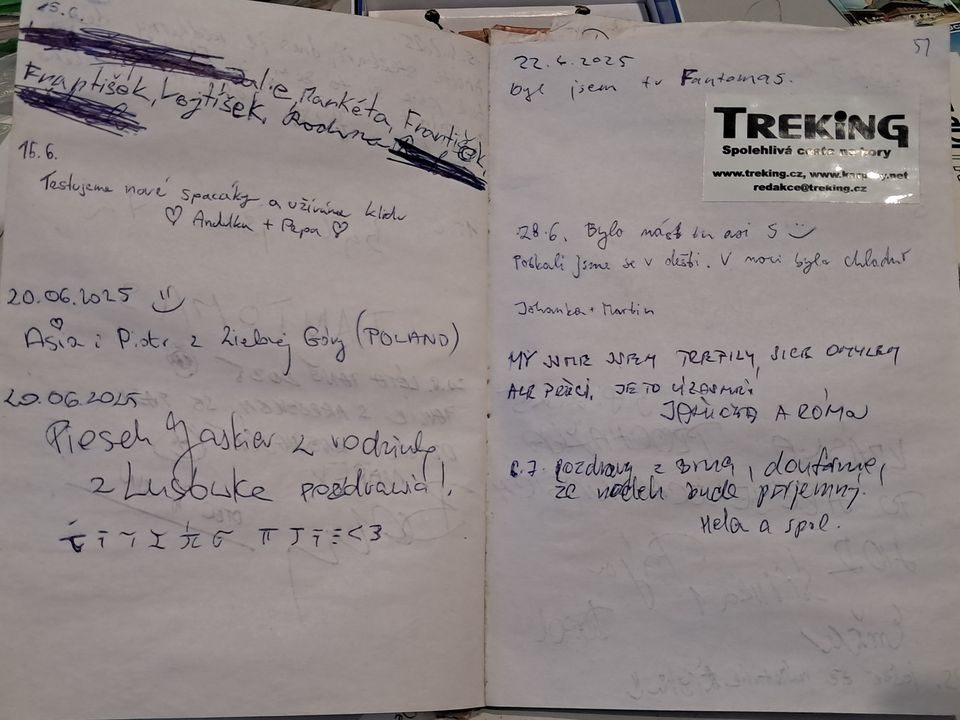 15.6.
Julie, Markéta, František,
František, Vojtíšek, Rodina
15.6.
Testujeme nové spacáky a užíváme klidu
♡ Andulka + Pepa ♡
20.06.2025
Asia i Piotr z Zielonej Góry (POLAND)
20.06.2025
Piesek Jaskier z rodzinką
z Lusówka pozdrawia!
51
22.4.2025
byl jsem tu Fantomas.
TREKING
Spolehlivá cesta na hory
www.treking.cz, www.karpaty.net
redakce@treking.cz
28.6. Bylo nás tu asi 5
Potkali jsme se v dešti. V noci bylo chladně
Johanka + Martin
MY JSME JSEM TREFILY, SICE OMYLEM
ALE PŘECI. JE TO ÚŽASNÉ!
A RÓMA
6.7. pozdravy z Brna, doufáme,
že nocleh bude příjemný.
Hela a spol.